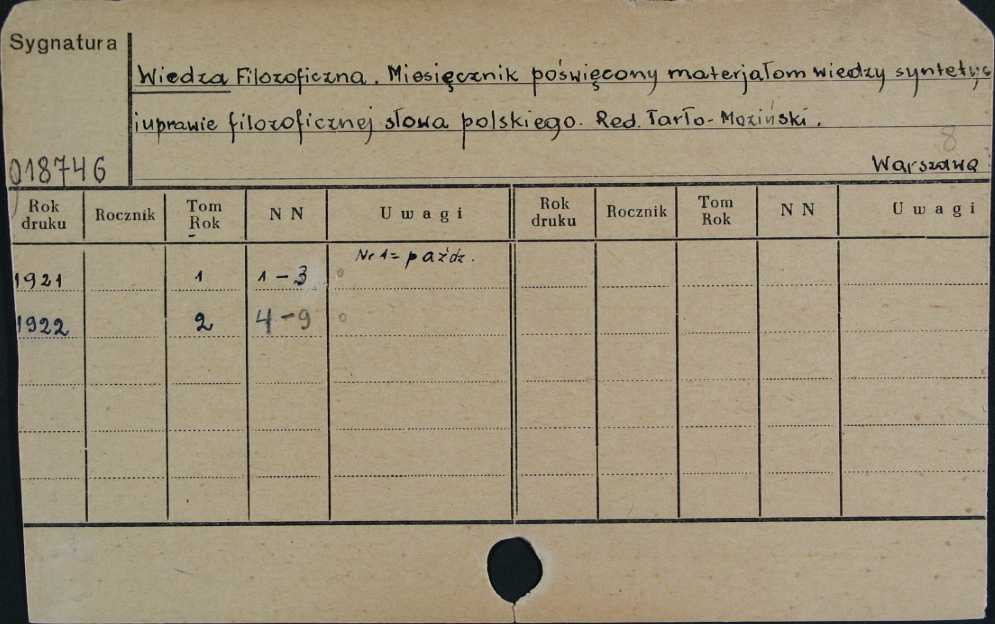 Sygnatura
Wiedza Filozoficzna. Miesięcznik poświęcony materjałom wiedzy syntetyc
i uprawie filozoficznej słowa polskiego. Red. Tarło-Maziński.
8
018746 Warszawa
Rok druku Rocznik Tom Rok N N Uwagi Rok druku Rocznik Tom Rok N N Uwagi
Nr 1 = paźdz.
1921 1 1-3
1922 2 4-9